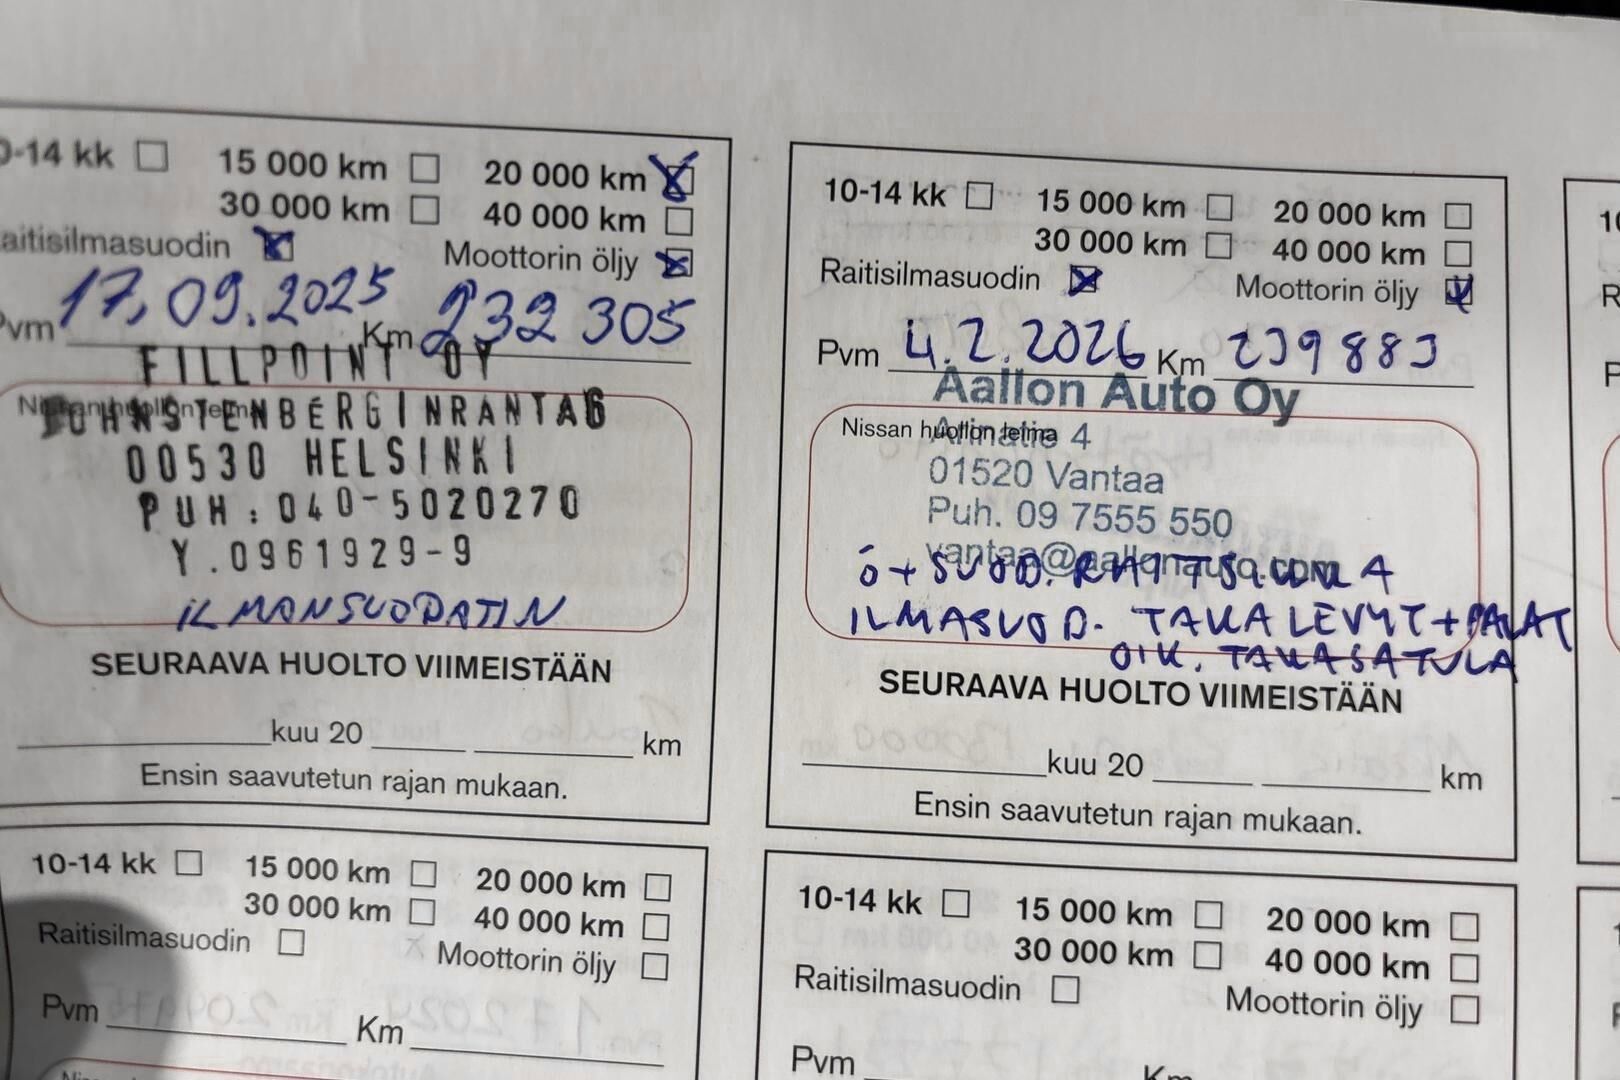 0-14 kk 15 000 km 20 000 km
30 000 km 40 000 km
aitisilmasuodin Moottorin öljy
Pvm 17.09.2025 Km 232 305
FILLPOINT OY
Nissan huollon leima
JOHN STENBERGINRANTA 6
00530 HELSINKI
PUH: 040-5020270
Y.0961929-9
ILMANSUODATIN
SEURAAVA HUOLTO VIIMEISTÄÄN
kuu 20 km
Ensin saavutetun rajan mukaan.
10-14 kk 15 000 km 20 000 km
30 000 km 40 000 km
Raitisilmasuodin Moottorin öljy
Pvm 4.2.2026 Km 239883
Aallon Auto Oy
Nissan huollon leima
4
01520 Vantaa
Puh. 09 7555 550
Ö+SUOD.
ILMASUOD. TAKALEVYT+PALAT
OIK. TAKASATULA
SEURAAVA HUOLTO VIIMEISTÄÄN
kuu 20 km
Ensin saavutetun rajan mukaan.
10-14 kk 15 000 km 20 000 km
30 000 km 40 000 km
Raitisilmasuodin Moottorin öljy
Pvm Km
10-14 kk 15 000 km 20 000 km
30 000 km 40 000 km
Raitisilmasuodin Moottorin öljy
Pvm Km